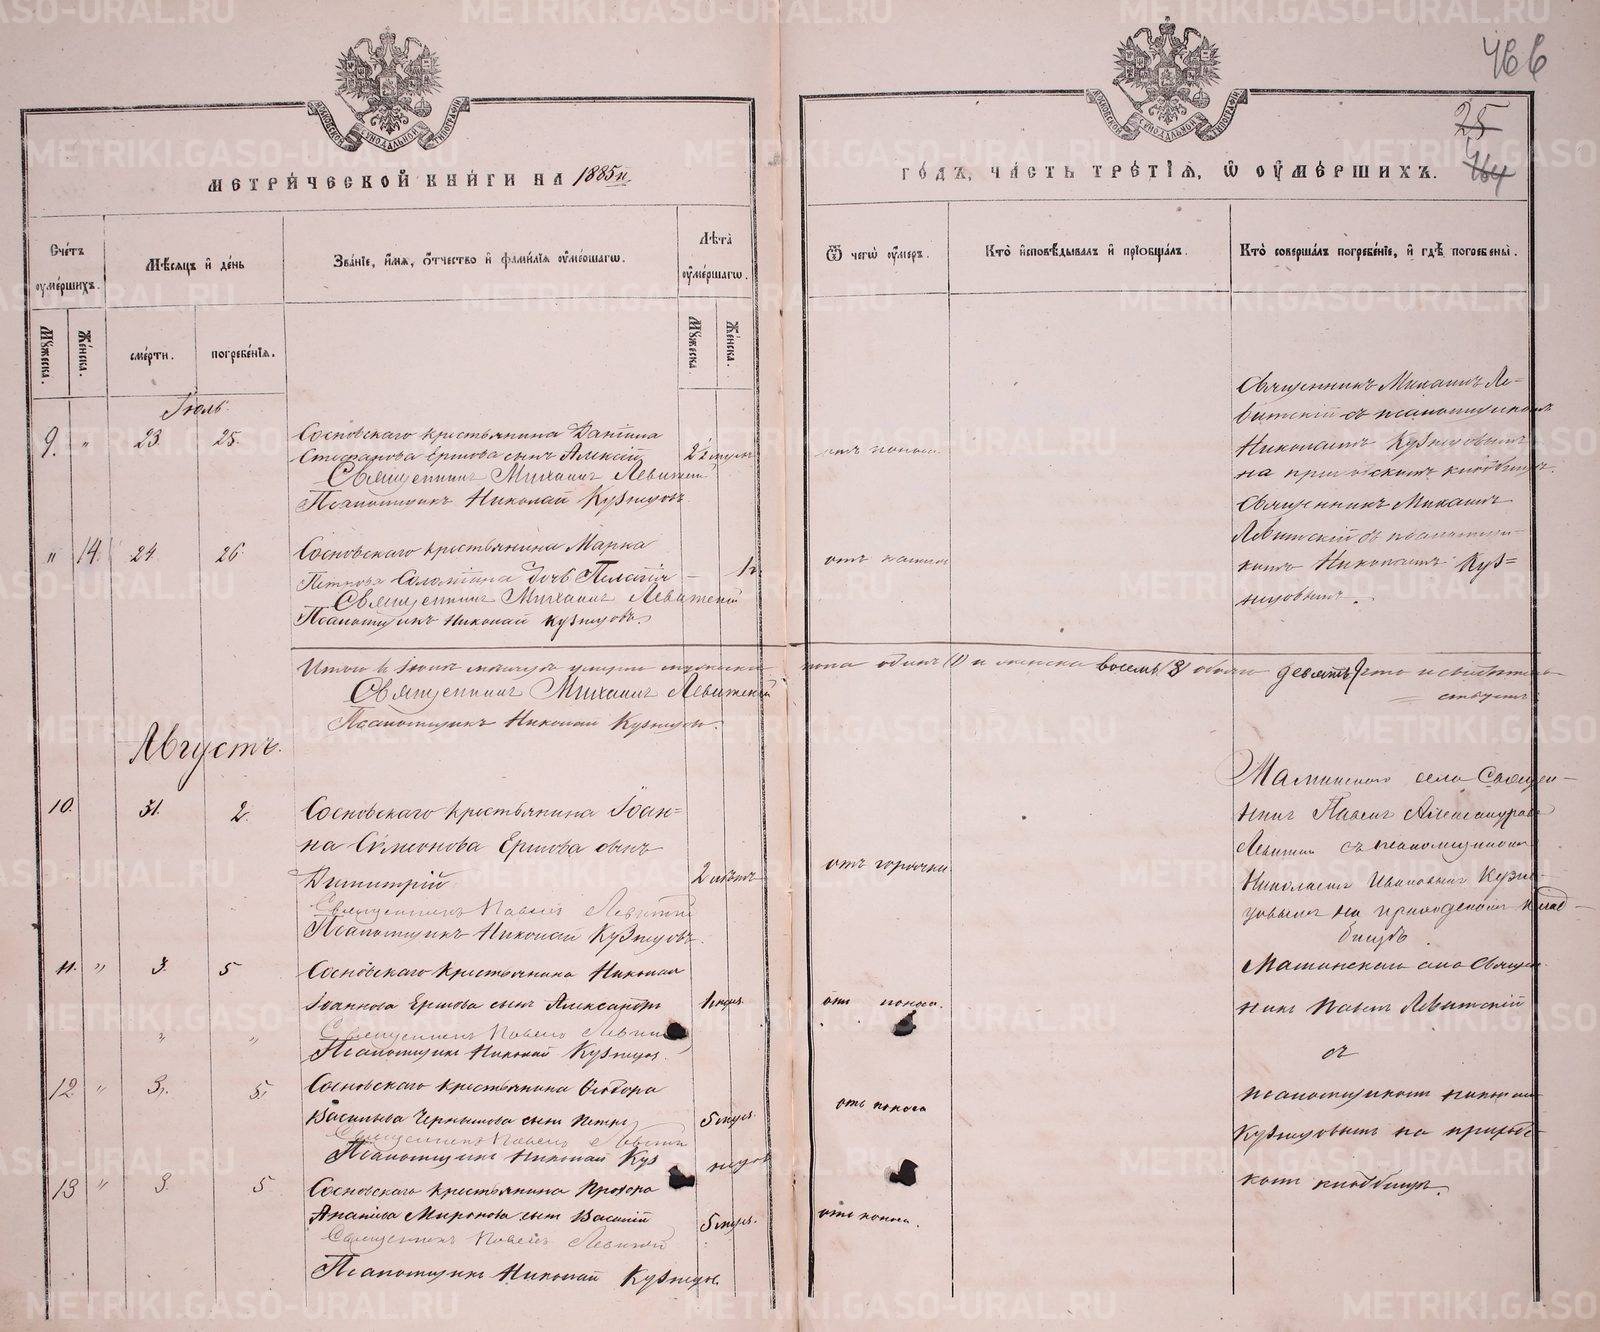 466
25
164
МЕТРИЧЕСКОЙ КНИГИ НА 1885й
ГОДЪ, ЧАСТЬ ТРЕТІЯ, Ѿ ОУМЕРШИХЪ.
Счетъ оумершихъ.
Мѣсяцъ и день
Званіе, имя, отчество и фамилія оумершагѡ.
Лѣта оумершагѡ.
Ѿ чегѡ оумеръ.
Кто исповѣдывалъ и пріобщалъ.
Кто совершалъ погребеніе, и гдѣ погребены.
Мꙋжеска.
Женска.
смерти.
погребенія.
Мꙋжеска.
Женска.
Іюль.
9. " 23. 25.
Сосновскаго крестьянина Даніила
Стефанова Ершова сынъ Алексій
Священникъ Михаилъ Левитскій
Псаломщикъ Николай Кузнецовъ.
отъ поноса
Священникъ Михаилъ Ле-
витскій съ псаломщикомъ
Николаемъ Кузнецовымъ
на кладбищѣ.
" 14. 24. 26.
Сосновскаго крестьянина Марка
Петрова дочь Пелагія
Священникъ Михаилъ Левитскій
Псаломщикъ Николай Кузнецовъ.
Священникъ Михаилъ
Левитскій съ псаломщи-
комъ Николаемъ Куз=
нецовымъ.
Итого в Іюлѣ мѣсяцѣ умерло мужеска пола одинъ (1) и женска восемь (8) обоего девять 9
Священникъ Михаилъ Левитскій
Псаломщикъ Николай Кузнецовъ.
Августъ.
10. 31. 2.
Сосновскаго крестьянина Іоан=
на Симеонова Ершова сынъ
Димитрій
2 лѣтъ
Священникъ Павелъ Левитскій
Псаломщикъ Николай Кузнецовъ.
отъ горячки.
Маминскаго села Священ-
никъ Павелъ Александровъ
Левитскій съ псаломщикомъ
Николаемъ Ивановымъ Кузне-
цовымъ на приходскомъ клад-
бищѣ.
11. " 3. 5
Сосновскаго крестьянина Николая
Іоаннова Ершова сынъ Александръ
Священникъ Павелъ Левитскій
Псаломщикъ Николай Кузнецов.
отъ поноса.
Маминскаго села Священ
никъ Павелъ Левитскій
съ
псаломщикомъ Николаемъ
Кузнецовымъ на приход-
комъ кладбищѣ.
12 " 3. 5.
Сосновскаго крестьянина Ѳеодора
Васильева Чернышова сынъ Петръ
5 мѣся.
Священникъ Павелъ Левитскій
Псаломщикъ Николай Куз нецовъ
отъ поноса
13 " 3. 5
Сосновскаго крестьянина Прохора
Ананіева Миронова сынъ Василій
5 мѣся.
Священникъ Павелъ Левитскій
Псаломщикъ Николай Кузнецов.
отъ поноса.
METRIKI.GASO-URAL.RU